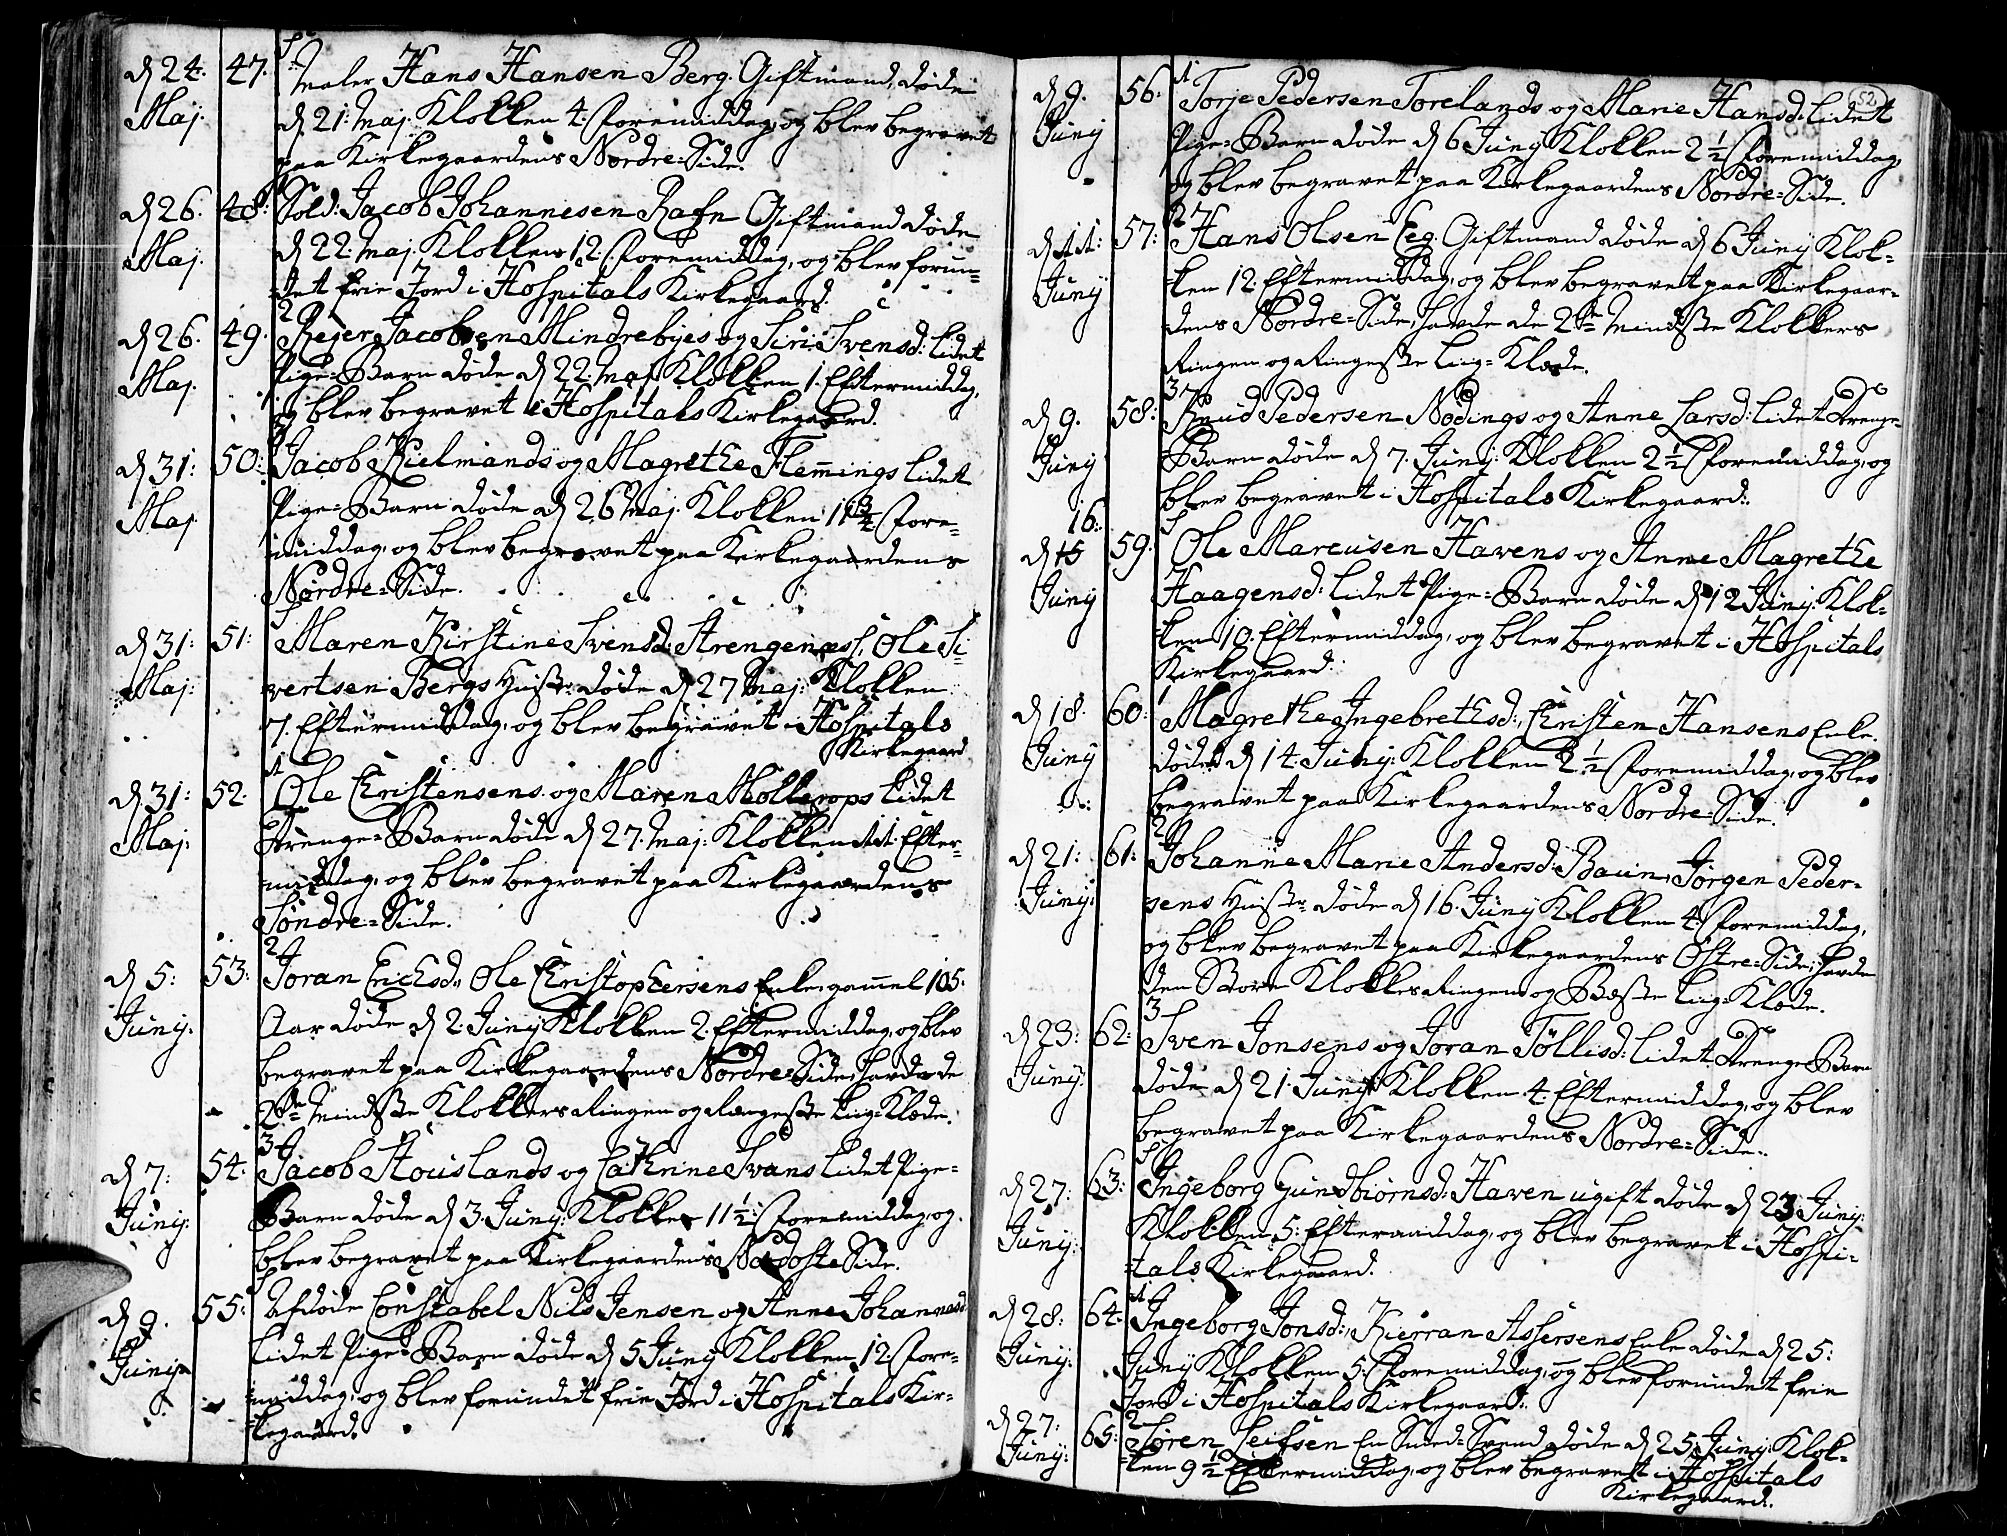 d 24. Maj. 47. Maler Hans Hansen Berg. Giftmand, døde
d 21: Maj. Klokken 4. Foremiddag, og blev begravet
paa Kirkegaardens Nordre=Side.
d 26. Maj. 48. Sold: Jacob Johannesen Rafn Giftmand døde
d 22. Maj. Klokken 12. Foremiddag, og blev forun=
=det frie Jord i Hospitals Kirkegaard.
2
d 26. Maj. 49. Rejer Jacobsen Mindrebyes og Siri Svensd: lidet
Pige=Barn døde d 22. Maj. Klokken 1. Eftermiddag,
og blev begravet i Hospitals Kirkegaard.
d 31: Maj. 50: Jacob Kielmands og Magrethe Flem̄ings lidet
Pige=Barn døde d 26 Maj. Klokken 11 3/4 Fore=
middag, og blev begravet paa Kirkegaardens
Nørdre=Side.
d 31: Maj: 51: Maren Kirstine Svensd: Strengenæss, Ole Si=
vertsen Bergs Hustr: døde d 27 Maj: Klokken
7. Eftermiddag, og blev begravet i Hospitals
Kirkegaard
1
d 31: Maj: 52. Ole Christensens og Maren Mollerops lidet
Drenge=Barn døde d 27. Maj: Klokken 11. Efter=
=middag, og blev begravet paa Kirkegaardens
Søndre=Side.
2
d 5: Juny: 53: Joran Erichsd:, Ole Christophersens Enke, gam̄el 105.
Aar døde d 2. Juny Klokken 2. Eftermiddag, og blev
begravet paa Kirkegaardens Nordre=Side, havde de
2de Mindste Klokkers Ringen og Ringeste Liig=Klæde.
3
d 7: Juny: 54: Jacob Stouslands og Cathrine Svans lidet Pige=
Barn døde d 3. Juny: Klokken 11 1/2: Foremiddag, og
blev begravet paa Kirkegaardens Nordoste Side.
d 9. Juny 55: Afdøde Constabel Nils Jensen og Anne Johannesd
lidet Pige=Barn døde d 5 Juny Klokken 12. Fore=
=middag, og blev forundet frie Jord i Hospitals Kir=
=kegaard.
52
1
d 9. Juny 56: Torje Pedersen Torelands og Marie Hansd: lidet
Pige=Barn døde d 6 Juny Klokken 2 1/2 Foremiddag,
og blev begravet paa Kirkegaardens Nordre=Side.
2
d 11: Juny 57: Hans Olsen Eeg. Giftmand døde d 6 Juny Klok=
=ken 12. Eftermiddag, og blev begravet paa Kirkegaar=
dens Nordre=Side, havde de 2de Mindste Klokkers
Ringen og Ringeste Liig=Klæde.
3
d 9. Juny 58: Knud Pedersen Nodings og Anne Larsd: lidet Drenge=
Barn døde d 7. Juny: Klokken 2 1/2 Foremiddag, og
blev begravet i Hospitals Kirkegaard:
16:
d 15 Juny 59. Ole Marcusen Havens og Anne Magrethe
Haagensd: lidet Pige=Barn døde d 12 Juny: Klok=
=ken 10. Eftermiddag, og blev begravet i Hospitals
Kirkegaard:
1
d 18. Juny 60: Magrethe Ingebrethsd:, Christen Hansens Enke,
døde d 14. Juny: Klokken 2 1/2 Foremiddag, og blev
begravet paa Kirkegaardens Nordre=Side.
2
d 21: Juny: 61: Johanne Marie Andersd: Baun, Jørgen Peder=
sens Hustr: døde d 16. Juny Klokken 4. Foremiddag,
og blev begravet paa Kirkegaardens Østre=Side, havde
den Store Klokkes Ringen og Beste Liig=Klæde.
3
d 23: Juny: 62: Sven Jonsens og Joran Tollisd: lidet Drenge Barn
døde d 21. Juny Klokken 4. Eftermiddag, og blev
begravet paa Kirkegaardens Nordre=Side.
d 27: Juny: 63: Ingeborg Gundbiørnsd: Haven ugift døde d 23 Juny:
Klokken 5: Eftermiddag, og blev begravet i Hospi=
=tals Kirkegaard.
1
d 28: Juny: 64: Ingeborg Jonsd:, Kierran Assersens Enke døde d 25:
Juny Klokken 5. Foremiddag, og blev forundet frie
Jord i Hospitals Kirkegaard.
2
d 27: Juny: 65: Søren Leifsen En Smed=Svend døde d 25. Juny: Klok=
=ken 9 1/2 Eftermiddag, og blev begravet i Hospitals
Kirkegaard: